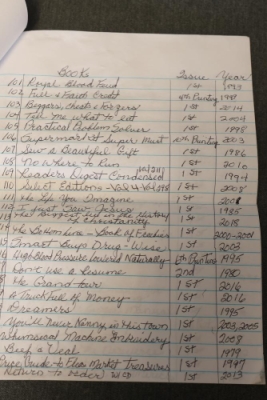 Books Issue Year
101. Royal Blood Fued 1st 1993
102. Full & Faith Credit 4th Printing 1989
103. Beggars, Cheats & Forgers 1st 2014
104. Tell Me what to eat 1st 2004
105. Practical Problem Solver 1st 1998
106. Supermarket Super Printing 2003
107. Sew a Beautiful Gift 1st 1986
108. No Where to Run 1st 2016
109. Readers Digest Condensed 1st 1994
110. Select Editions 1st 2008
111. The Life You Imagine 1st
112. I Just Saw Jesus 1st 1985
The in the History of Christianity 1st 2018
The Bottom Line - Book of 1st 2000-2001
Smart Buys Drug-Wise 1st 2003
High Blood Pressure Lowered Naturally 6th Printing 1995
Don't use a Resume 2nd 1980
The Grand tour 1st 2016
A Truck Full of Money 1st 2016
Dreamers 1st 1995
You'll Never Nanny in this town 1st 2003, 2005
Whimsical Machine Embroidery 1st 2008
Beef & Veal 1st 1979
Price Guide to Flea Market Treasures 1st 1997
Return to 1st 2013